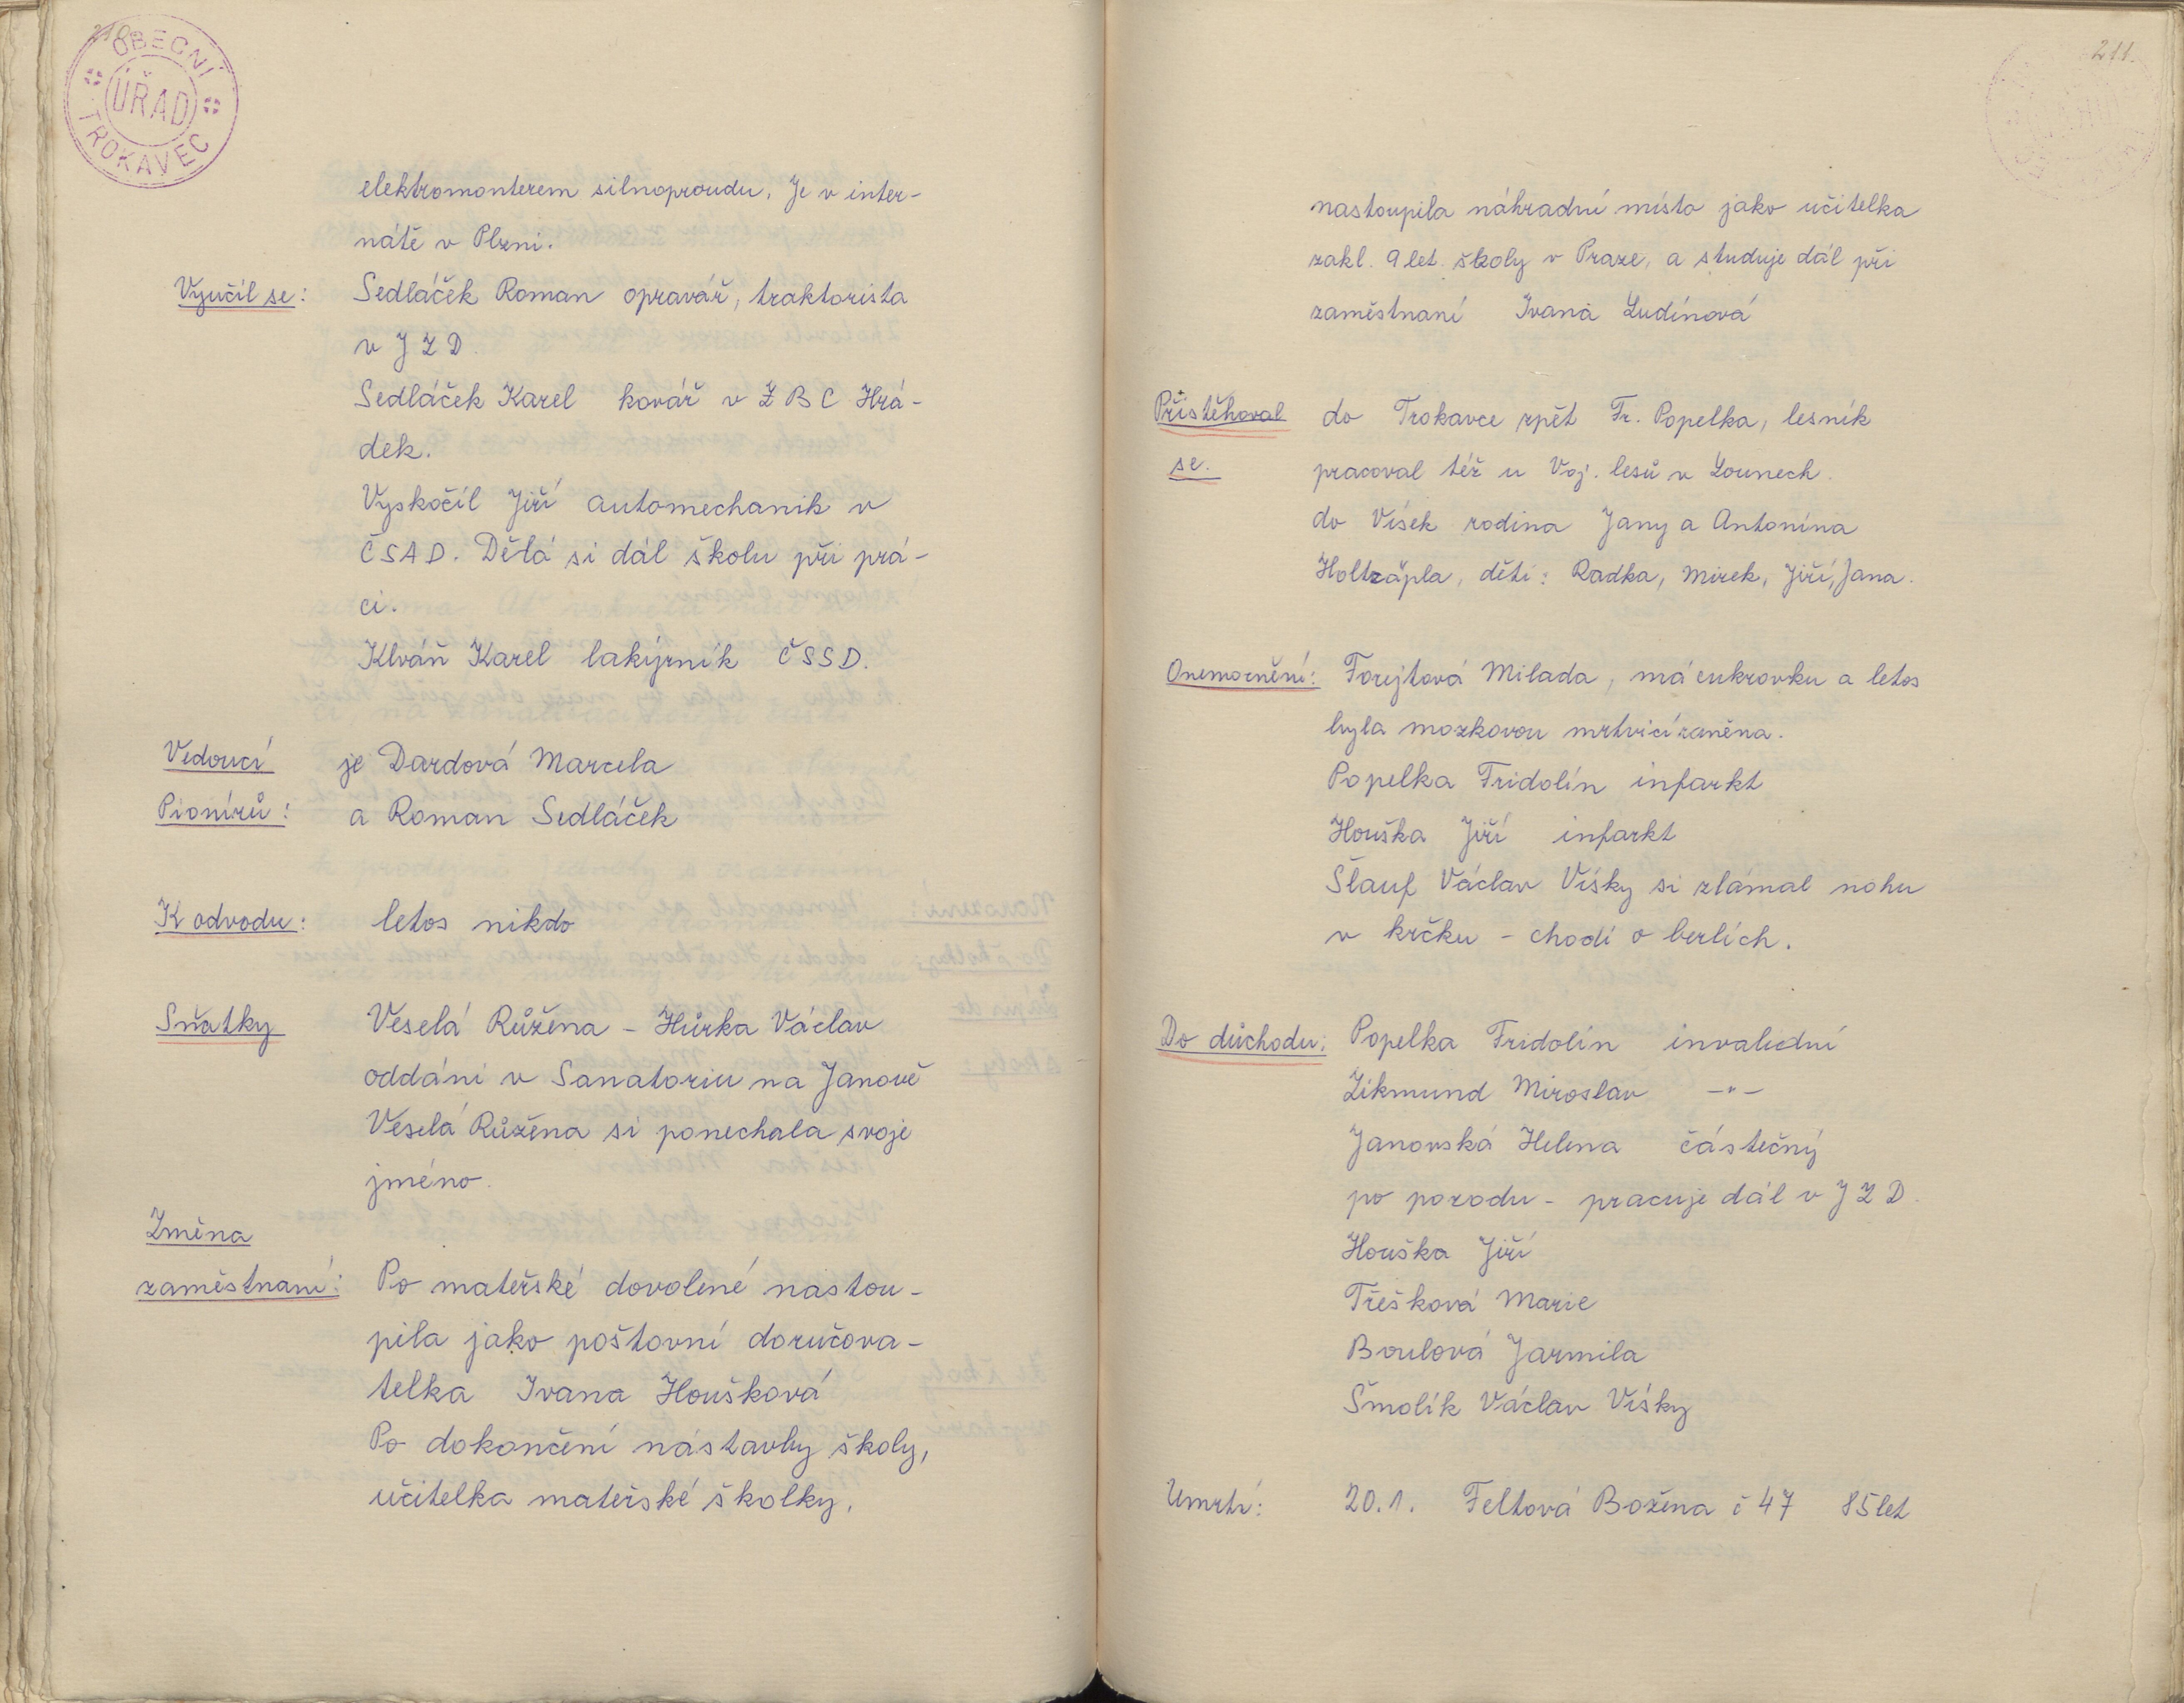 210.
OBECNÍ
ÚŘAD
TROKAVEC
elektromonterem silnoproudu. Je v inter-
nátě v Plzni.
Vyučil se: Sedláček Roman opravář, traktorista
v JZD.
Sedláček Karel kovář v ZBC Hrá-
dek.
Vyskočil Jiří automechanik v
ČSAD. Dělá si dál školu při prá-
ci.
Klváň Karel lakýrník ČSSD.
Vedoucí je Dardová Marcela
Pionírů: a Roman Sedláček
K odvodu: letos nikdo
Sňatky Veselá Růžena - Hůrka Václav
oddáni v Sanatoriu na Janově
Veselá Růžena si ponechala svoje
jméno.
Změna
zaměstnaní: Po mateřské dovolené nastou-
pila jako poštovní doručova-
telka Ivana Houšková
Po dokončení nástavby školy,
učitelka mateřské školky,
211.
nastoupila náhradní místo jako učitelka
zakl. 9 let. školy v Praze, a studuje dál při
zaměstnaní Ivana Ludínová
Přistěhoval do Trokavce zpět Fr. Popelka, lesník
se. pracoval též u Voj. lesů v Lounech.
do Víšek rodina Jany a Antonína
Holtzäpla, děti: Radka, Mirek, Jiří, Jana.
Onemocnění: Forejtová Milada, má cukrovku a letos
byla mozkovou mrtvicí raněna.
Popelka Fridolín infarkt
Houška Jiří infarkt
Šlauf Václav Víšky si zlámal nohu
v krčku - chodí o berlích.
Do důchodu: Popelka Fridolín invalidní
Zikmund Miroslav -"-
Janovská Helena částečný
po porodu - pracuje dál v JZD.
Houška Jiří
Třešková Marie
Boulová Jarmila
Šmolík Václav Víšky
Umrtí: 20.1. Feltová Božena č 47 85 let